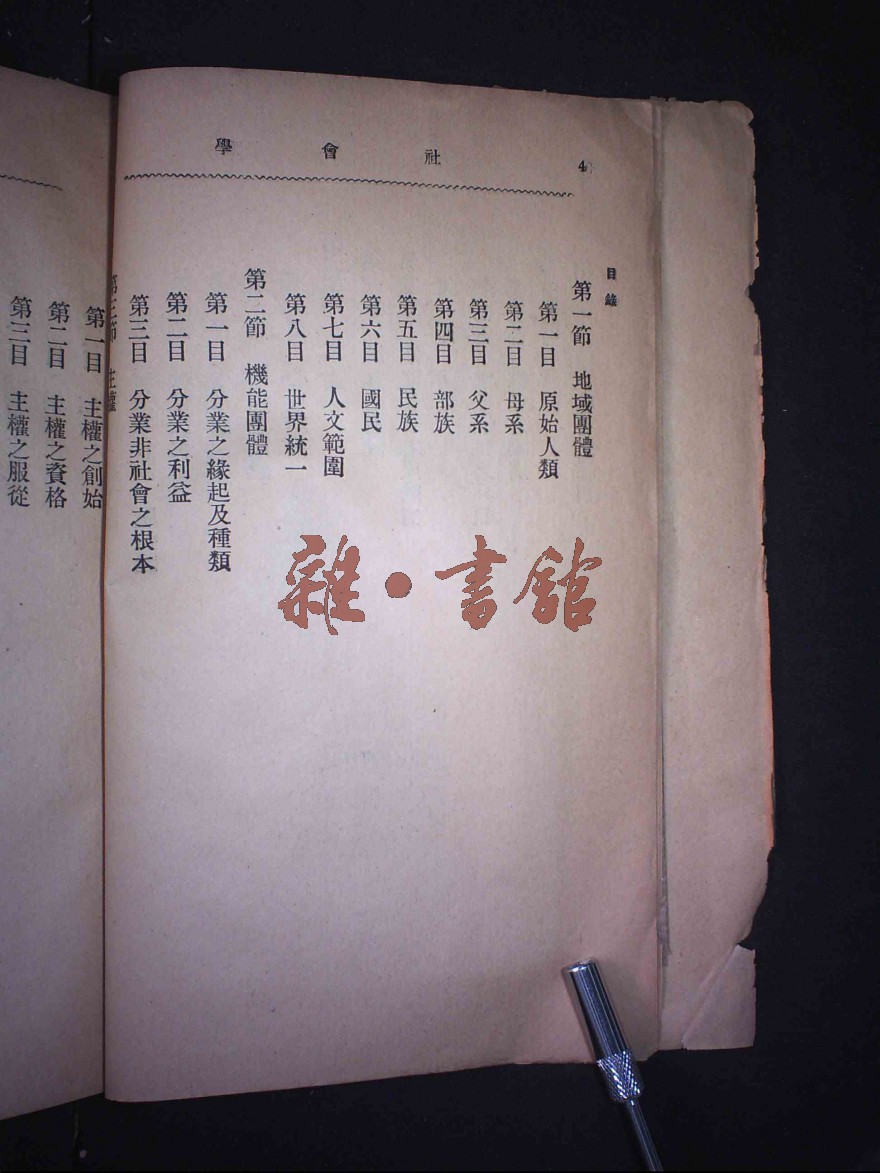 社會學
4
目錄
第一節 地域團體
第一目 原始人類
第二目 母系
第三目 父系
第四目 部族
第五目 民族
第六目 國民
第七目 人文範圍
第八目 世界統一
第二節 機能團體
第一目 分業之緣起及種類
第二目 分業之利益
第三目 分業非社會之根本
第三節 主權
第一目 主權之創始
第二目 主權之資格
第三目 主權之服從
雜·書館